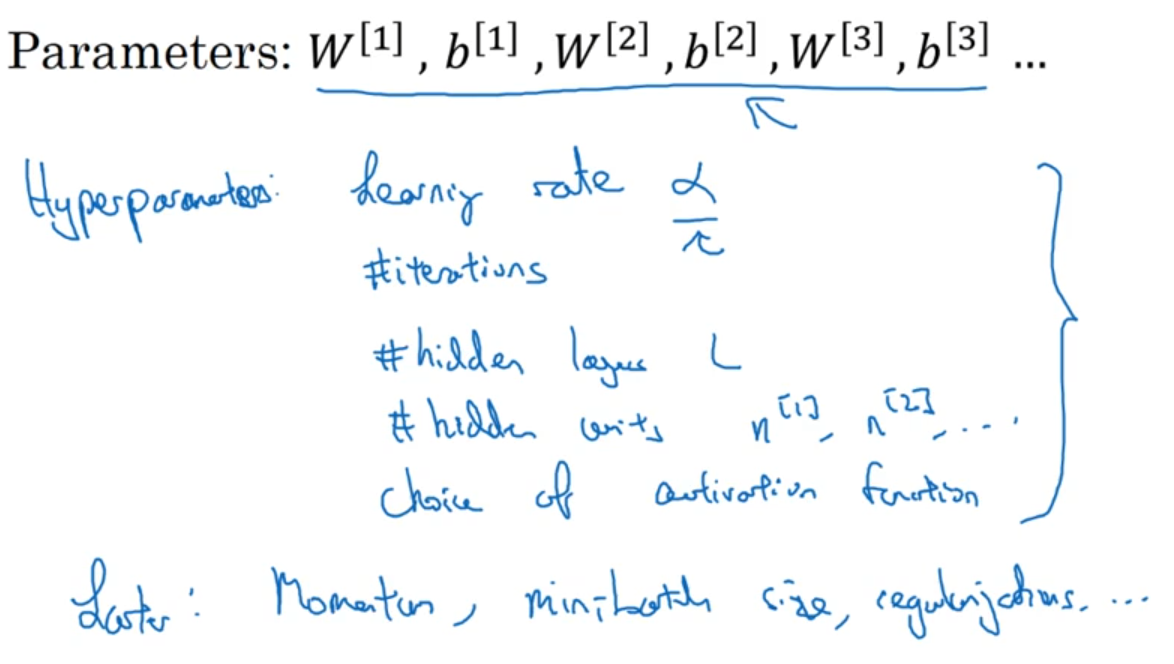 Parameters: W[1] , b[1] , W[2] , b[2] , W[3] , b[3] ...
Hyperparameters: Learning rate α
#iterations
#hidden layers L
# hidden units n[1], n[2], ....
choice of activation function
Later: Momentum, mini-batch size, regularizations, ...